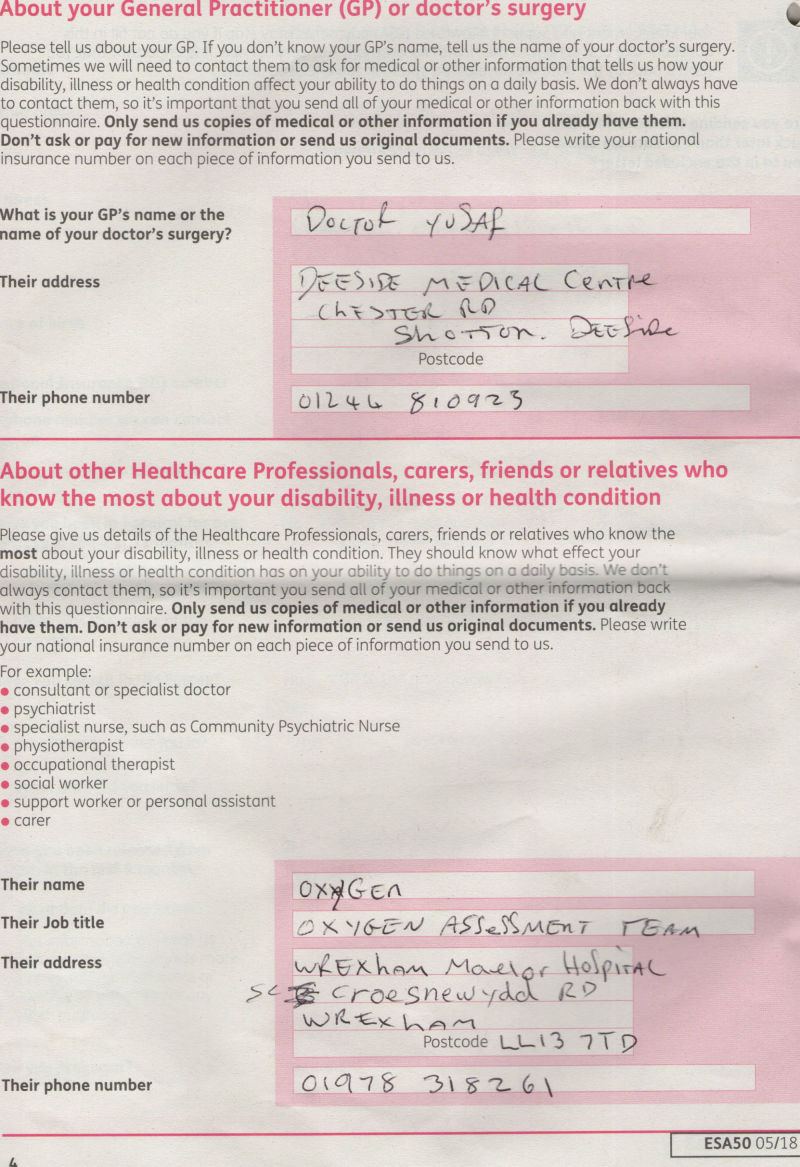 About your General Practitioner (GP) or doctor's surgery
Please tell us about your GP. If you don't know your GP's name, tell us the name of your doctor's surgery.
Sometimes we will need to contact them to ask for medical or other information that tells us how your
disability, illness or health condition affect your ability to do things on a daily basis. We don't always have
to contact them, so it's important that you send all of your medical or other information back with this
questionnaire. Only send us copies of medical or other information if you already have them.
Don't ask or pay for new information or send us original documents. Please write your national
insurance number on each piece of information you send to us.
What is your GP's name or the
name of your doctor's surgery?
DOCTOR YUSAF
Their address
DEESIDE MEDICAL CENTRE
CHESTER RD
SHOTTON. DEESIDE
Postcode
Their phone number
01244 810923
About other Healthcare Professionals, carers, friends or relatives who
know the most about your disability, illness or health condition
Please give us details of the Healthcare Professionals, carers, friends or relatives who know the
most about your disability, illness or health condition. They should know what effect your
disability, illness or health condition has on your ability to do things on a daily basis. We don't
always contact them, so it's important you send all of your medical or other information back
with this questionnaire. Only send us copies of medical or other information if you already
have them. Don't ask or pay for new information or send us original documents. Please write
your national insurance number on each piece of information you send to us.
For example:
• consultant or specialist doctor
• psychiatrist
• specialist nurse, such as Community Psychiatric Nurse
• physiotherapist
• occupational therapist
• social worker
• support worker or personal assistant
• carer
Their name
OXYGEN
Their Job title
OXYGEN ASSESSMENT TEAM
Their address
WREXHAM Maelor HOSPITAL
Croesnewydd RD
WREXHAM
Postcode LL13 7TD
Their phone number
01978 318261
ESA50 05/18
4